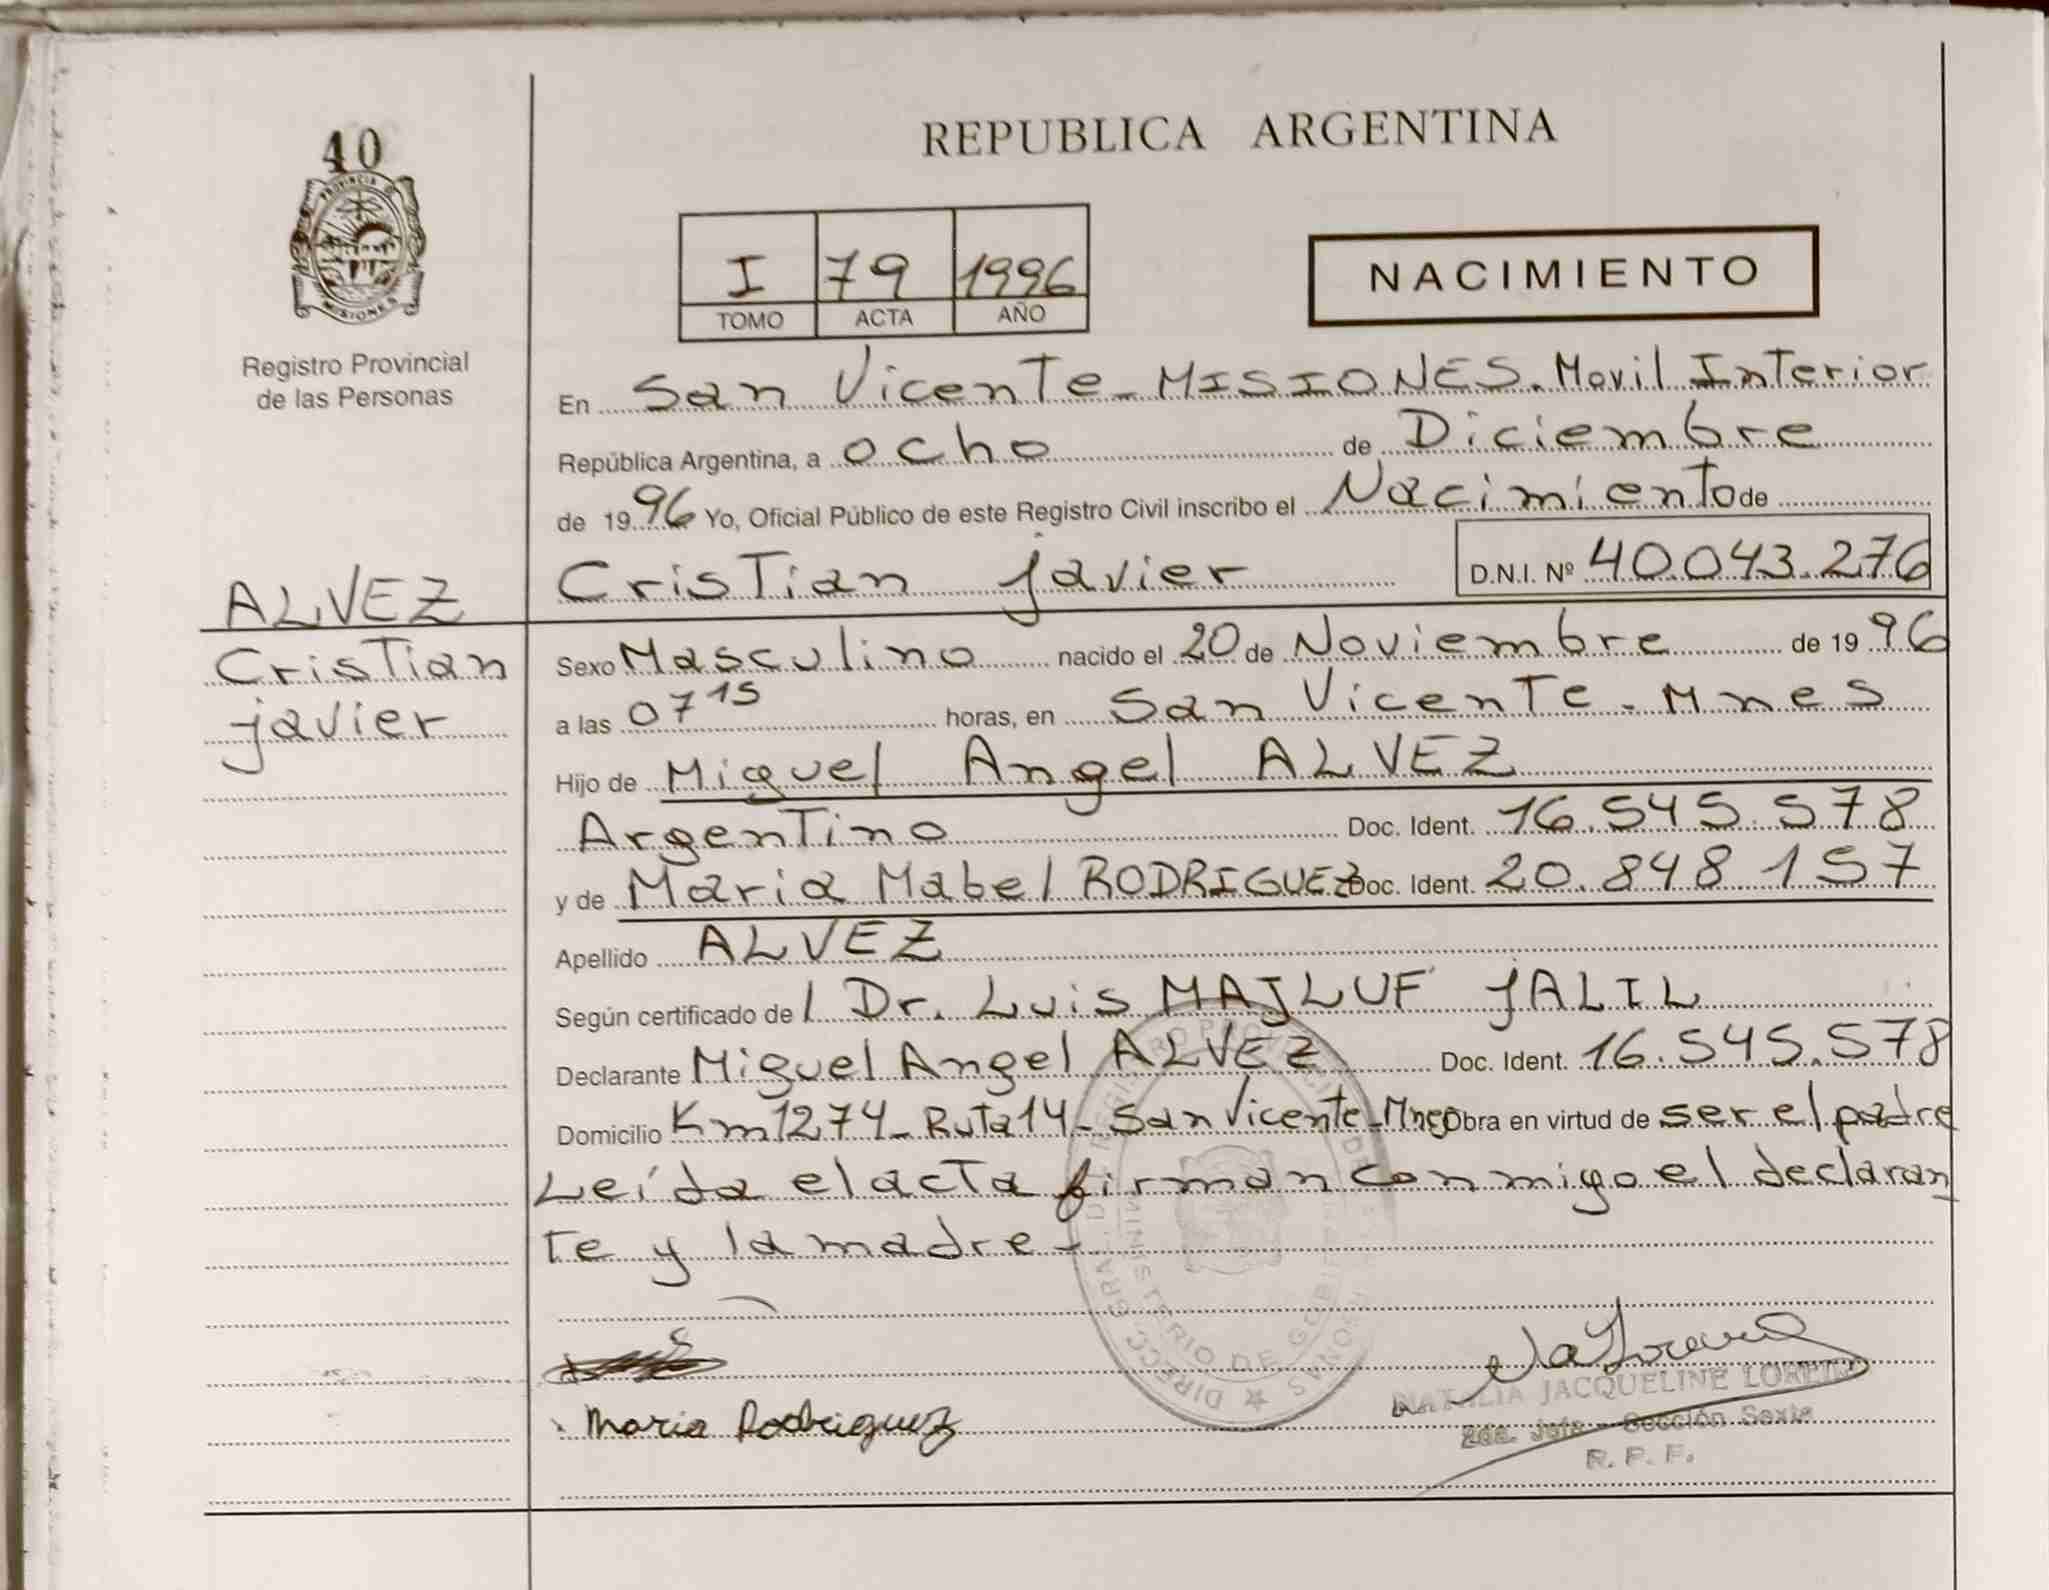 40
PROVINCIA D
MISIONES
Registro Provincial
de las Personas
REPUBLICA ARGENTINA
I 79 1996
TOMO ACTA AÑO
NACIMIENTO
En San Vicente - MISIONES. Movil Interior
República Argentina, a ocho de Diciembre
de 1996 Yo, Oficial Público de este Registro Civil inscribo el Nacimiento de
Cristian javier D.N.I. Nº 40.043.276
ALVEZ
Cristian
javier
Sexo Masculino nacido el 20 de Noviembre de 1996
a las 07 15 horas, en San Vicente. Mnes
Hijo de Miguel Angel ALVEZ
Argentino Doc. Ident. 16.545.578
y de Maria Mabel RODRIGUEZ Doc. Ident. 20.848.157
Apellido ALVEZ
Según certificado del Dr. Luis MAJLUF JALIL
Declarante Miguel Angel ALVEZ Doc. Ident. 16.545.578
Domicilio Km 1274 - Ruta 14 - San Vicente - Mnes Obra en virtud de ser el padre
Leída el acta firman conmigo el declaran
te y la madre -
Maria Rodriguez
NATALIA JACQUELINE
2da. Jefa - Sección Sexta
R. P. P.
MINISTERIO DE GOBIER